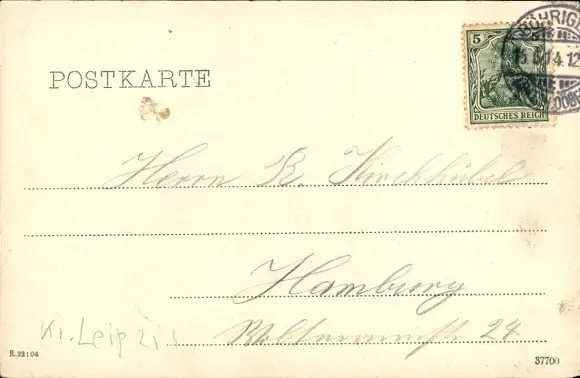 POSTKARTE
5
DEUTSCHES REICH
Herrn R. Kirchhübel
Hamburg
24
Kr. Leipzig
R. 22104
37700